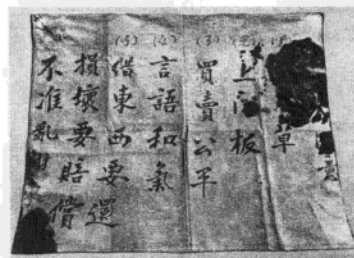 草
(2) 上门板
(3) 買賣公平
(4) 言語和氣
(5) 借東西要還
損壞要賠償
不准亂